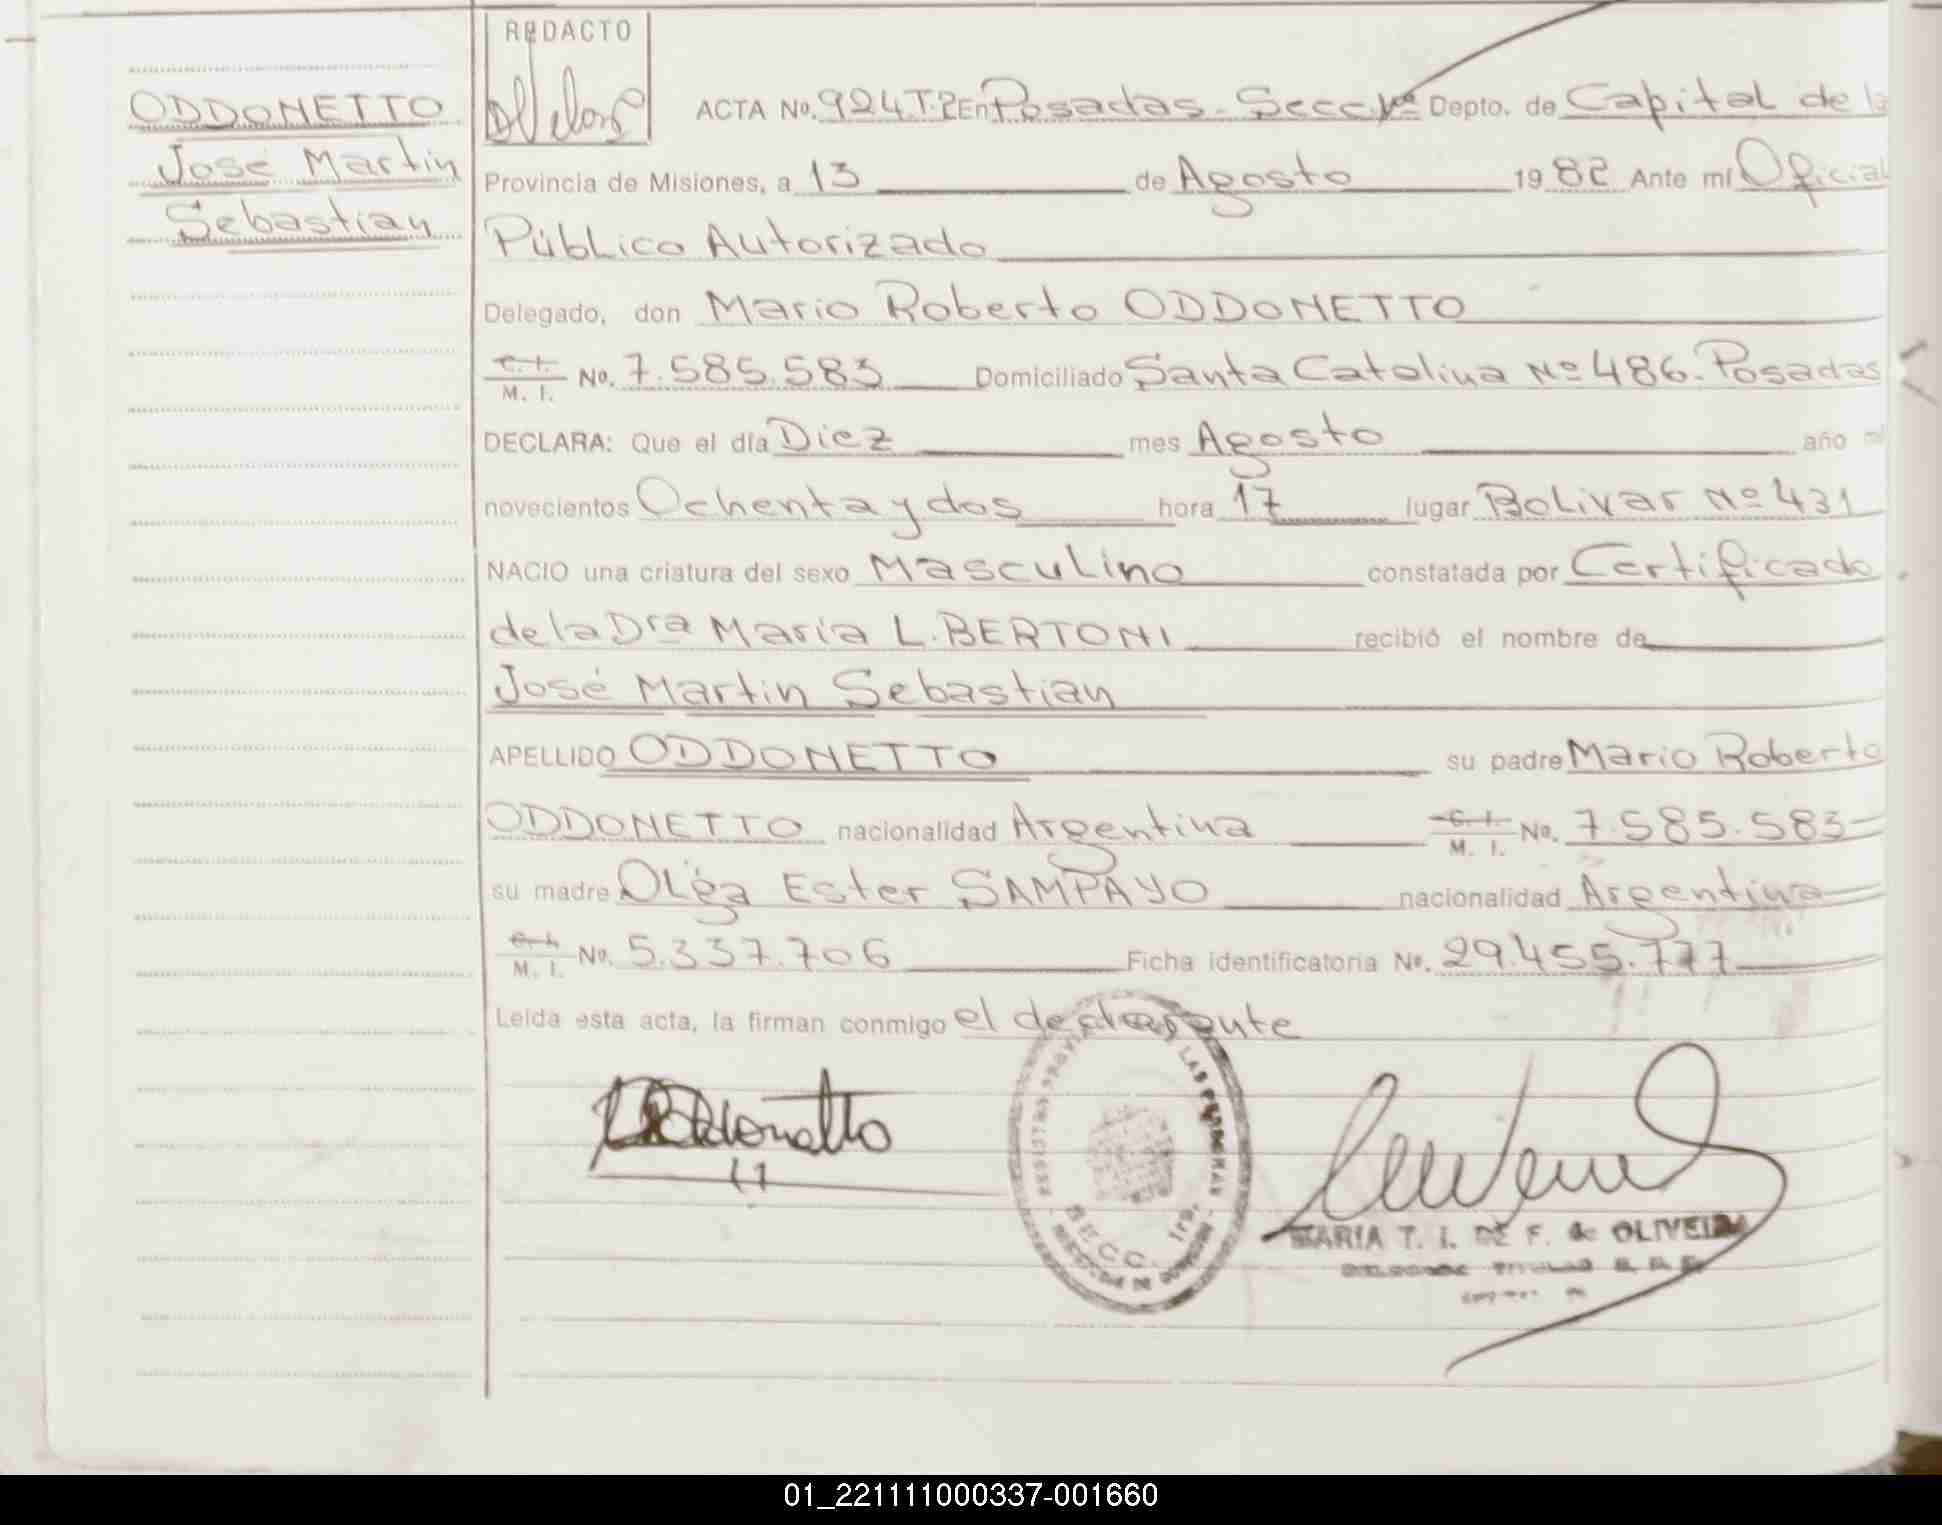 REDACTO
ODDONETTO
José Martin
Sebastian
ACTA No. 924 T.2 En Posadas - Secc 1ª Depto. de Capital de la
Provincia de Misiones, a 13 de Agosto 1982 Ante mí Oficial
Público Autorizado
Delegado, don Mario Roberto ODDONETTO
C. I. M. I. No. 7.585.583 Domiciliado Santa Catalina Nº 486. Posadas
DECLARA: Que el día Diez mes Agosto año mil
novecientos Ochenta y dos hora 17 lugar Bolivar Nº 431
NACIO una criatura del sexo Masculino constatada por Certificado
de la Dra María L. BERTONI recibió el nombre de
José Martin Sebastian
APELLIDO ODDONETTO su padre Mario Roberto
ODDONETTO nacionalidad Argentina C. I. M. I. No. 7.585.583
su madre Olga Ester SAMPAYO nacionalidad Argentina
C. I. M. I. No. 5.337.706 Ficha identificatoria No. 29.455.777
Leída esta acta, la firman conmigo el declarante
SECC. 1ra.
MARIA T. I. DE F. de OLIVEIRA
01_221111000337-001660